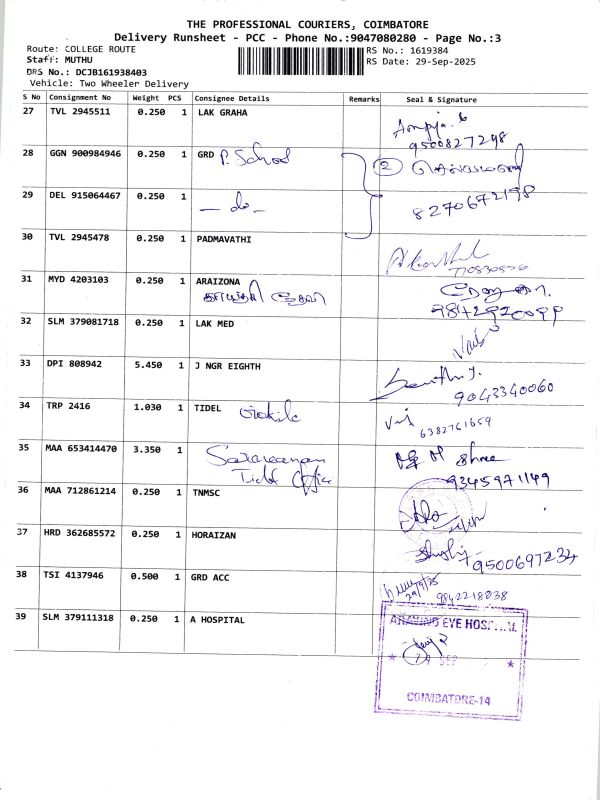 THE PROFESSIONAL COURIERS, COIMBATORE
Delivery Runsheet - PCC - Phone No.:9047080280 - Page No.:3
Route: COLLEGE ROUTE
RS No.: 1619384
Staff: MUTHU
RS Date: 29-Sep-2025
DRS No.: DCJB161938403
Vehicle: Two Wheeler Delivery
S No Consignment No Weight PCS Consignee Details Remarks Seal & Signature
27 TVL 2945511 0.250 1 LAK GRAHA
9500827298
28 GGN 900984946 0.250 1 GRD P. School 2
29 DEL 915064467 0.250 1 — do —
8270672198
30 TVL 2945478 0.250 1 PADMAVATHI
31 MYD 4203103 0.250 1 ARAIZONA
32 SLM 379081718 0.250 1 LAK MED
33 DPI 808942 5.450 1 J NGR EIGHTH
9043340060
34 TRP 2416 1.030 1 TIDEL
6382761659
35 MAA 653414470 3.350 1
Tidel Office
Shree
9345971149
36 MAA 712861214 0.250 1 TNMSC
37 HRD 362685572 0.250 1 HORAIZAN
9500697234
38 TSI 4137946 0.500 1 GRD ACC
29/9/25
9842218038
39 SLM 379111318 0.250 1 A HOSPITAL
ARAVIND EYE HOSPITAL
SEP
COIMBATORE-14